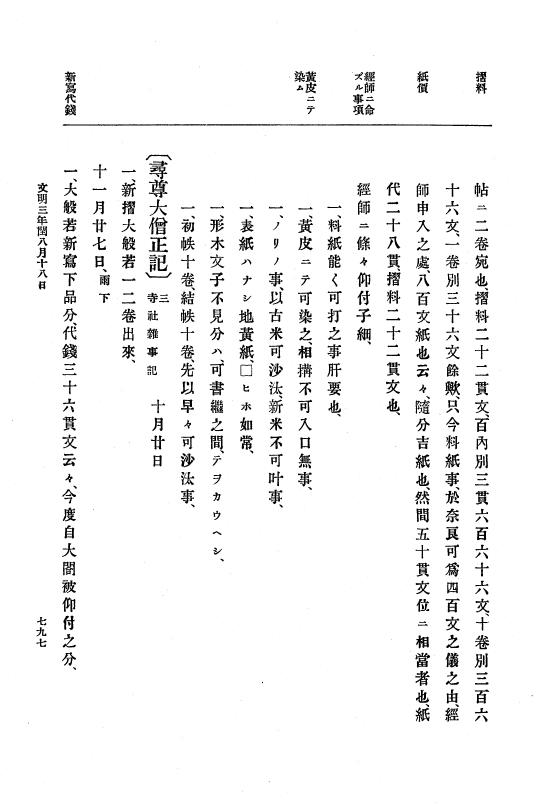 摺料
紙價
經師ニ命
ズル事項
黃皮ニテ
染ム
新寫代錢
帖ニ二卷宛也、摺料二十二貫文、百內別三貫六百六十六文、十卷別三百六
十六文、一卷別三十六文餘歟、只今料紙事、於奈良可爲四百文之儀之由、經
師申入之處、八百文紙也云々、隨分吉紙也、然間五十貫文位ニ相當者也、紙
代二十八貫、摺料二十二貫文也、
經師ニ條々仰付子細、
一、料紙能く可打之事肝要也、
一、黃皮ニテ可染之、相搆不可入口無事、
一、ノリノ事、以古米可沙汰、新米不可叶事、
一、表紙ハナシ地黃紙、□ヒホ如常、
一、形木文子不見分ハ、可書繼之間、テヲカウヘシ、
一、初帙十卷、結帙十卷、先以早々可沙汰事、
〔尋尊大僧正記〕三 寺社雜事記 十月廿日
一、新摺大般若一二卷出來、
十一月廿七日、雨下
一、大般若新寫下品分、代錢三十六貫文云々、今度自大閤被仰付之分、
文明三年閏八月十八日
七九七